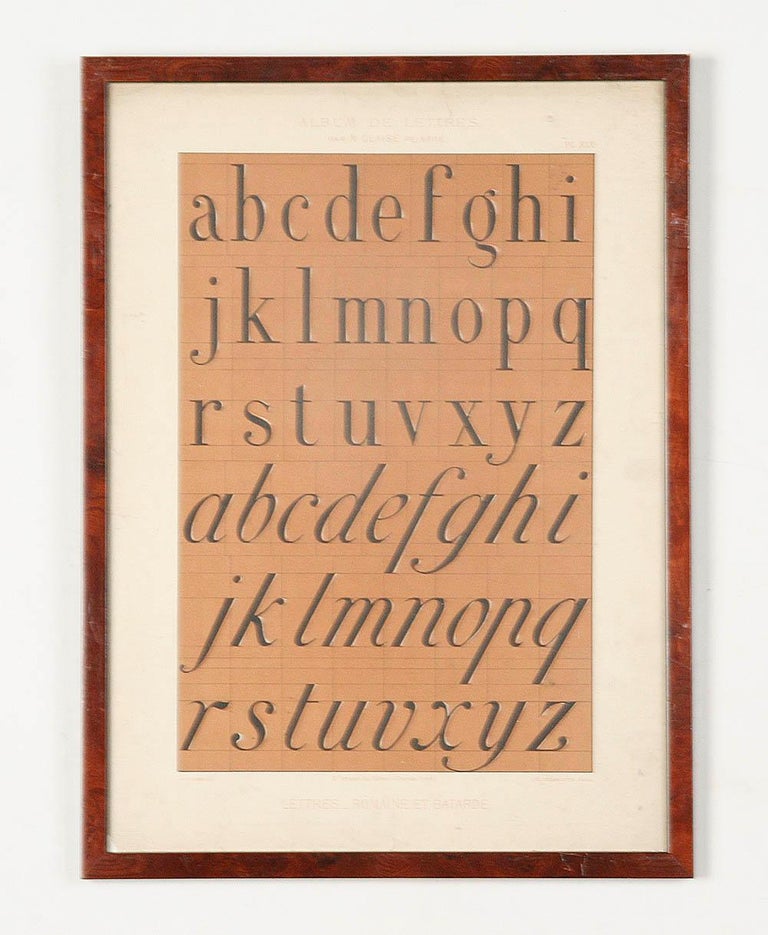 ALBUM DE LETTRES
PAR N.
PL.
a b c d e f g h i
j k l m n o p q
r s t u v x y z
a b c d e f g h i
j k l m n o p q
r s t u v x y z
LETTRES _ ROMAINE ET BATARDE